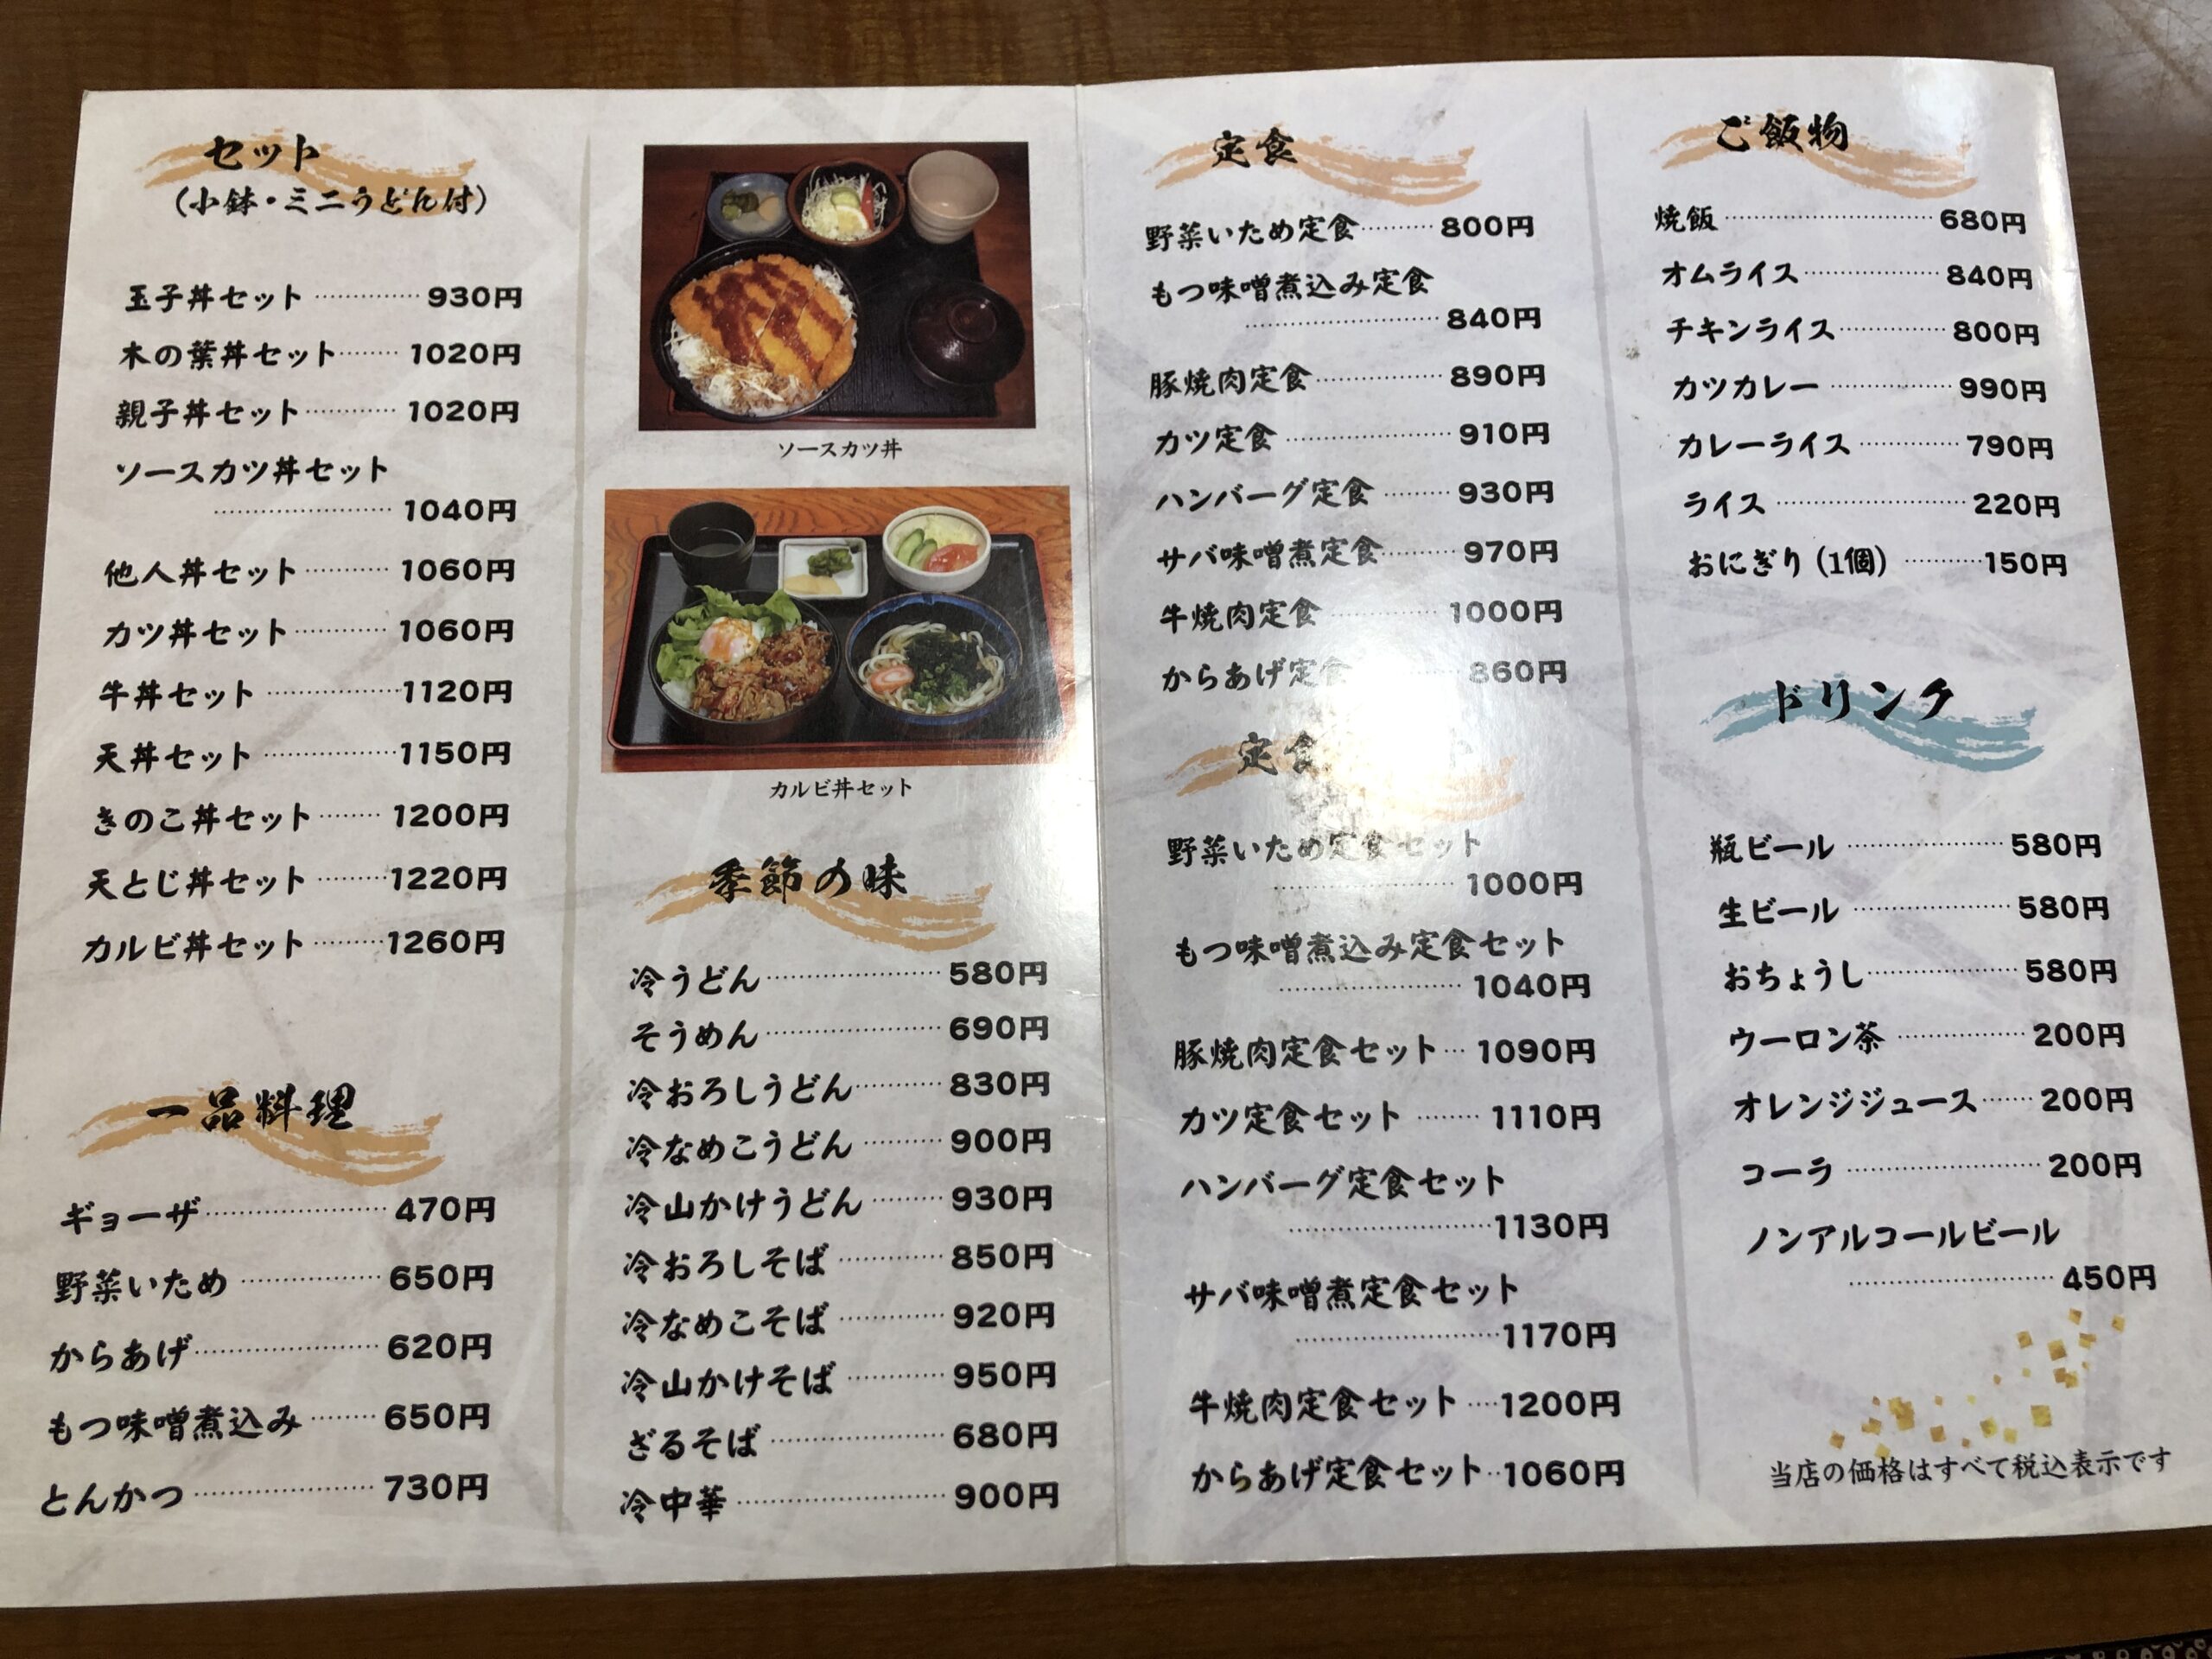 セット
(小鉢・ミニうどん付)
玉子丼セット 930円
木の葉丼セット 1020円
親子丼セット 1020円
ソースカツ丼セット
1040円
他人丼セット 1060円
カツ丼セット 1060円
牛丼セット 1120円
天丼セット 1150円
きのこ丼セット 1200円
天とじ丼セット 1220円
カルビ丼セット 1260円
一品料理
ギョーザ 470円
野菜いため 650円
からあげ 620円
もつ味噌煮込み 650円
とんかつ 730円
ソースカツ丼
カルビ丼セット
季節の味
冷うどん 580円
そうめん 690円
冷おろしうどん 830円
冷なめこうどん 900円
冷山かけうどん 930円
冷おろしそば 850円
冷なめこそば 920円
冷山かけそば 950円
ざるそば 680円
冷中華 900円
定食
野菜いため定食 800円
もつ味噌煮込み定食
840円
豚焼肉定食 890円
カツ定食 910円
ハンバーグ定食 930円
サバ味噌煮定食 970円
牛焼肉定食 1000円
からあげ定食 860円
定食
野菜いため定食セット
1000円
もつ味噌煮込み定食セット
1040円
豚焼肉定食セット 1090円
カツ定食セット 1110円
ハンバーグ定食セット
1130円
サバ味噌煮定食セット
1170円
牛焼肉定食セット 1200円
からあげ定食セット 1060円
ご飯物
焼飯 680円
オムライス 840円
チキンライス 800円
カツカレー 990円
カレーライス 790円
ライス 220円
おにぎり (1個) 150円
ドリンク
瓶ビール 580円
生ビール 580円
おちょうし 580円
ウーロン茶 200円
オレンジジュース 200円
コーラ 200円
ノンアルコールビール
450円
当店の価格はすべて税込表示です